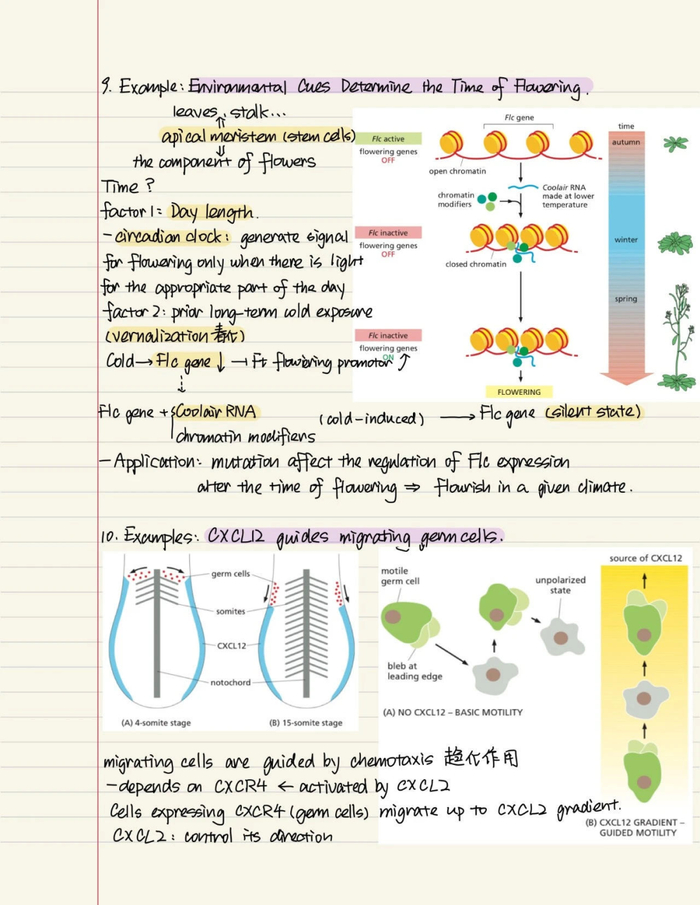 9. Example: Environmental Cues Determine the Time of Flowering.
leaves, stalk...
apical meristem (stem cells)
the component of flowers
Time?
factor 1: Day length.
- circadian clock: generate signal
for flowering only when there is light
for the appropriate part of the day
factor 2: prior long-term cold exposure
(vernalization 春化)
Cold → Flc gene ↓ → Ft flowering promotor ↑
Flc gene + { Coolair RNA (cold-induced) → Flc gene (silent state)
chromatin modifiers
- Application: mutation affect the regulation of Flc expression
alter the time of flowering ⇒ flourish in a given climate.
Flc gene
Flc active
flowering genes
OFF
open chromatin
chromatin
modifiers
Coolair RNA
made at lower
temperature
Flc inactive
flowering genes
OFF
closed chromatin
Flc inactive
flowering genes
ON
FLOWERING
time
autumn
winter
spring
10. Examples: CXCL12 guides migrating germ cells.
germ cells
somites
CXCL12
notochord
(A) 4-somite stage
(B) 15-somite stage
motile
germ cell
bleb at
leading edge
unpolarized
state
(A) NO CXCL12 – BASIC MOTILITY
source of CXCL12
(B) CXCL12 GRADIENT –
GUIDED MOTILITY
migrating cells are guided by chemotaxis 趋化作用
- depends on CXCR4 ← activated by CXCL2
Cells expressing CXCR4 (germ cells) migrate up to CXCL2 gradient.
CXCL2: control its direction